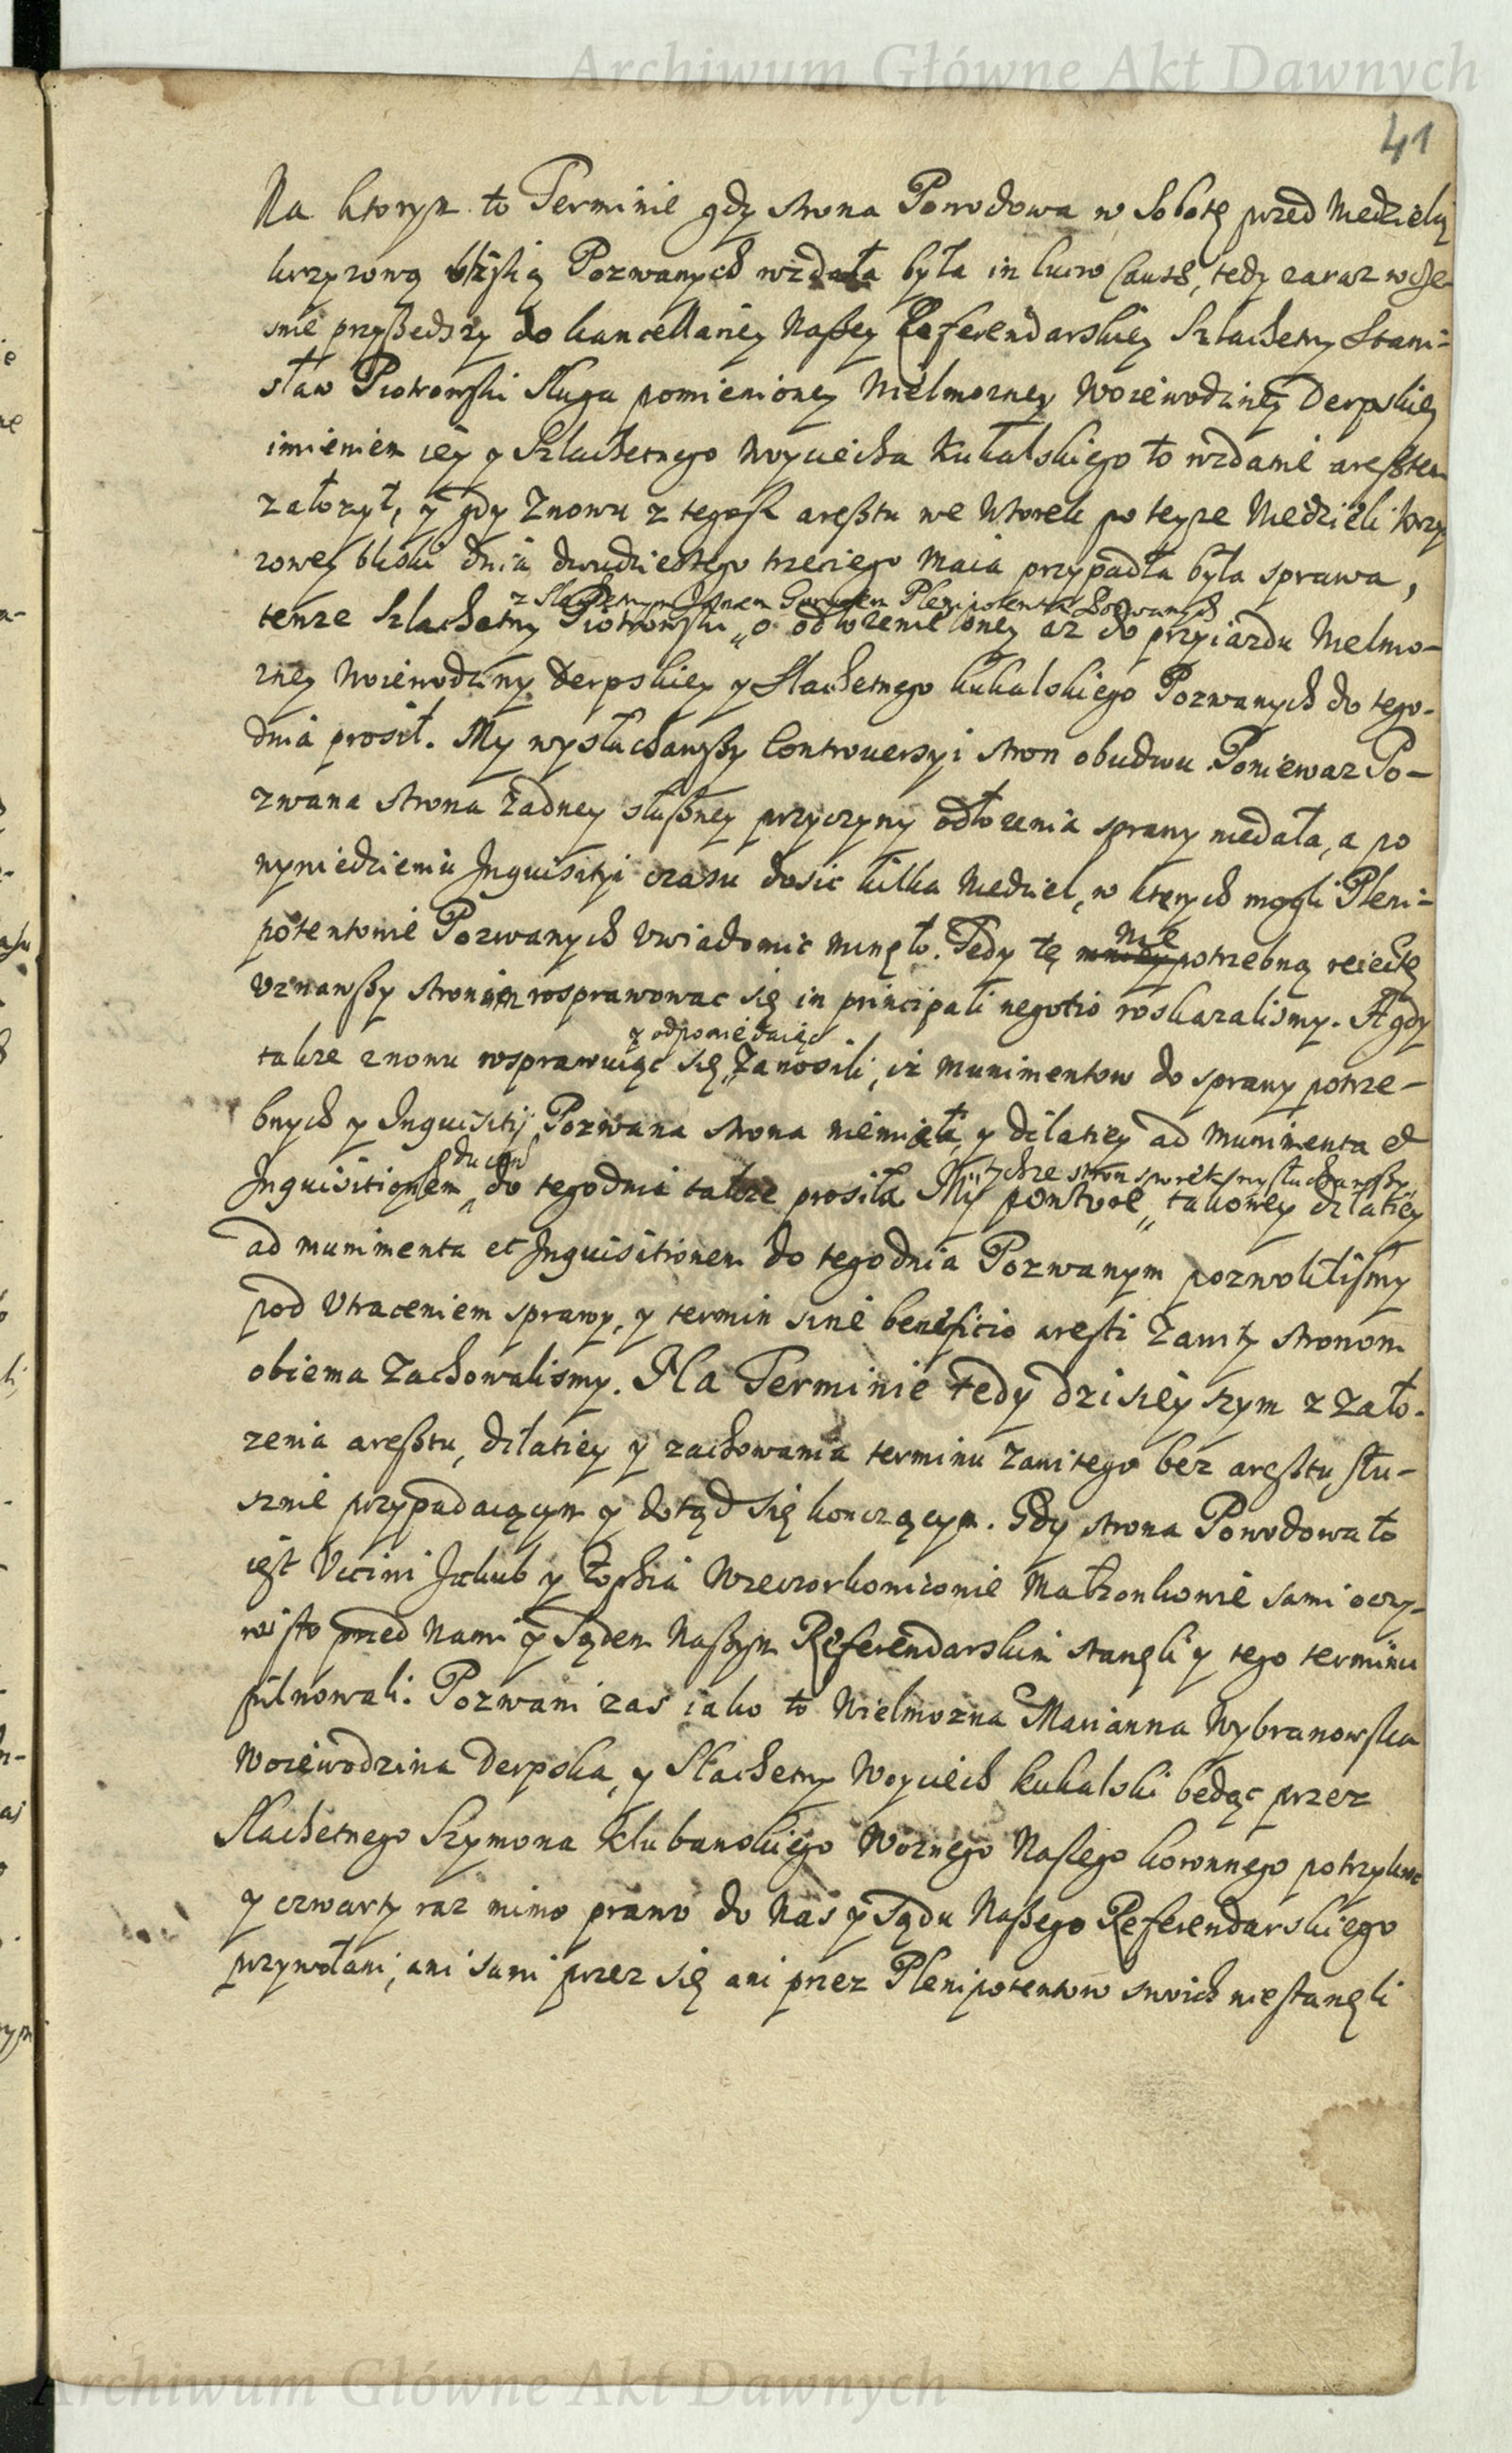 Archiwum Główne Akt Dawnych
41
Na ktorym to Terminie gdy strona Powodowa w Sobotę przed Niedzielą
krzyzową bliską Pozwanych wzdała była in lucro Causæ, tedy zaraz wcze-
snie przyszedszy do kancellariey Naszey Referendarskiey Szlachetny Stani-
sław Piotrowski sługa pomienioney Wielmozney Woiewodziney Derpskiey
imieniem iey y Szlachetnego Woyciecha Kukalskiego to wzdanie aresztem
załozył, y gdy znowu z tegosz aresztu we Wtorek po teyze Niedzieli krzy
zowey bliski dnia dwudziestego trzeciego Maia przypadła była sprawa,
z Slachetnym Janem Plenipotentem Pozwanych
tenze Szlachetny Piotrowski o odłozenie oney az do przyiazdu Wielmo-
zney Woiewodziny Derpskiey y Slachetnego Kukalskiego Pozwanych do tego-
dnia prosił. My wysłuchawszy Controuersyi stron obudwu Poniewaz Po-
zwana strona zadney słuszney przyczyny odłozenia sprawy niedała, a po
wywiedzieniu Inquisityi czasu dosic kilka Niedziel, w ktorych mogli Pleni-
potentowie Pozwanych uwiadomic minęło. Tedy tę
nie
potrzebną reiectę
uznawszy stronom rosprawowac się in principali negotio roskazalismy. A gdy
y odpowiedaiąc
takze znowu rosprawuiąc się zanosili, iz munimentow do sprawy potrze-
bnych y Inquisitij Pozwana strona niemiała, y dilatiey ad munimenta et
ducen
tychze stron sporek wysłuchawszy
Inquisitionem do tegodnia takze prosiła My powtore takowey dilatiey
ad munimenta et Inquisitionem do tegodnia Pozwanym pozwolilismy
pod utraceniem sprawy, y termin sine beneficio aresti zawity stronom
obiema zachowalismy. Na Terminie tedy dzisieyszym z zało-
zenia aresztu, dilatiey y zachowania terminu zawitego bez aresztu słu-
sznie przypadaiącym y dotąd się konczącym. Gdy strona Powodowa to
iest Ucciwi Jakub y Zophia Wieczorkowiczowie Małzonkowie sami oczy-
wisto przed Nami y Sądem Naszym Referendarskim stanęli y tego terminu
pilnowali. Pozwani zas iako to Wielmozna Marianna Wybranowska
Woiewodzina Derpska, y Slachetny Woyciech Kukalski bedąc przez
Slachetnego Szymona Klubanskiego Woznego Naszego koronnego potrzykroc
y czwarty raz mimo prawo do Nas y Sądu Naszego Referendarskiego
przywołani, ani sami przez się ani przez Plenipotentow swoich niestanęli
Archiwum Główne Akt Dawnych